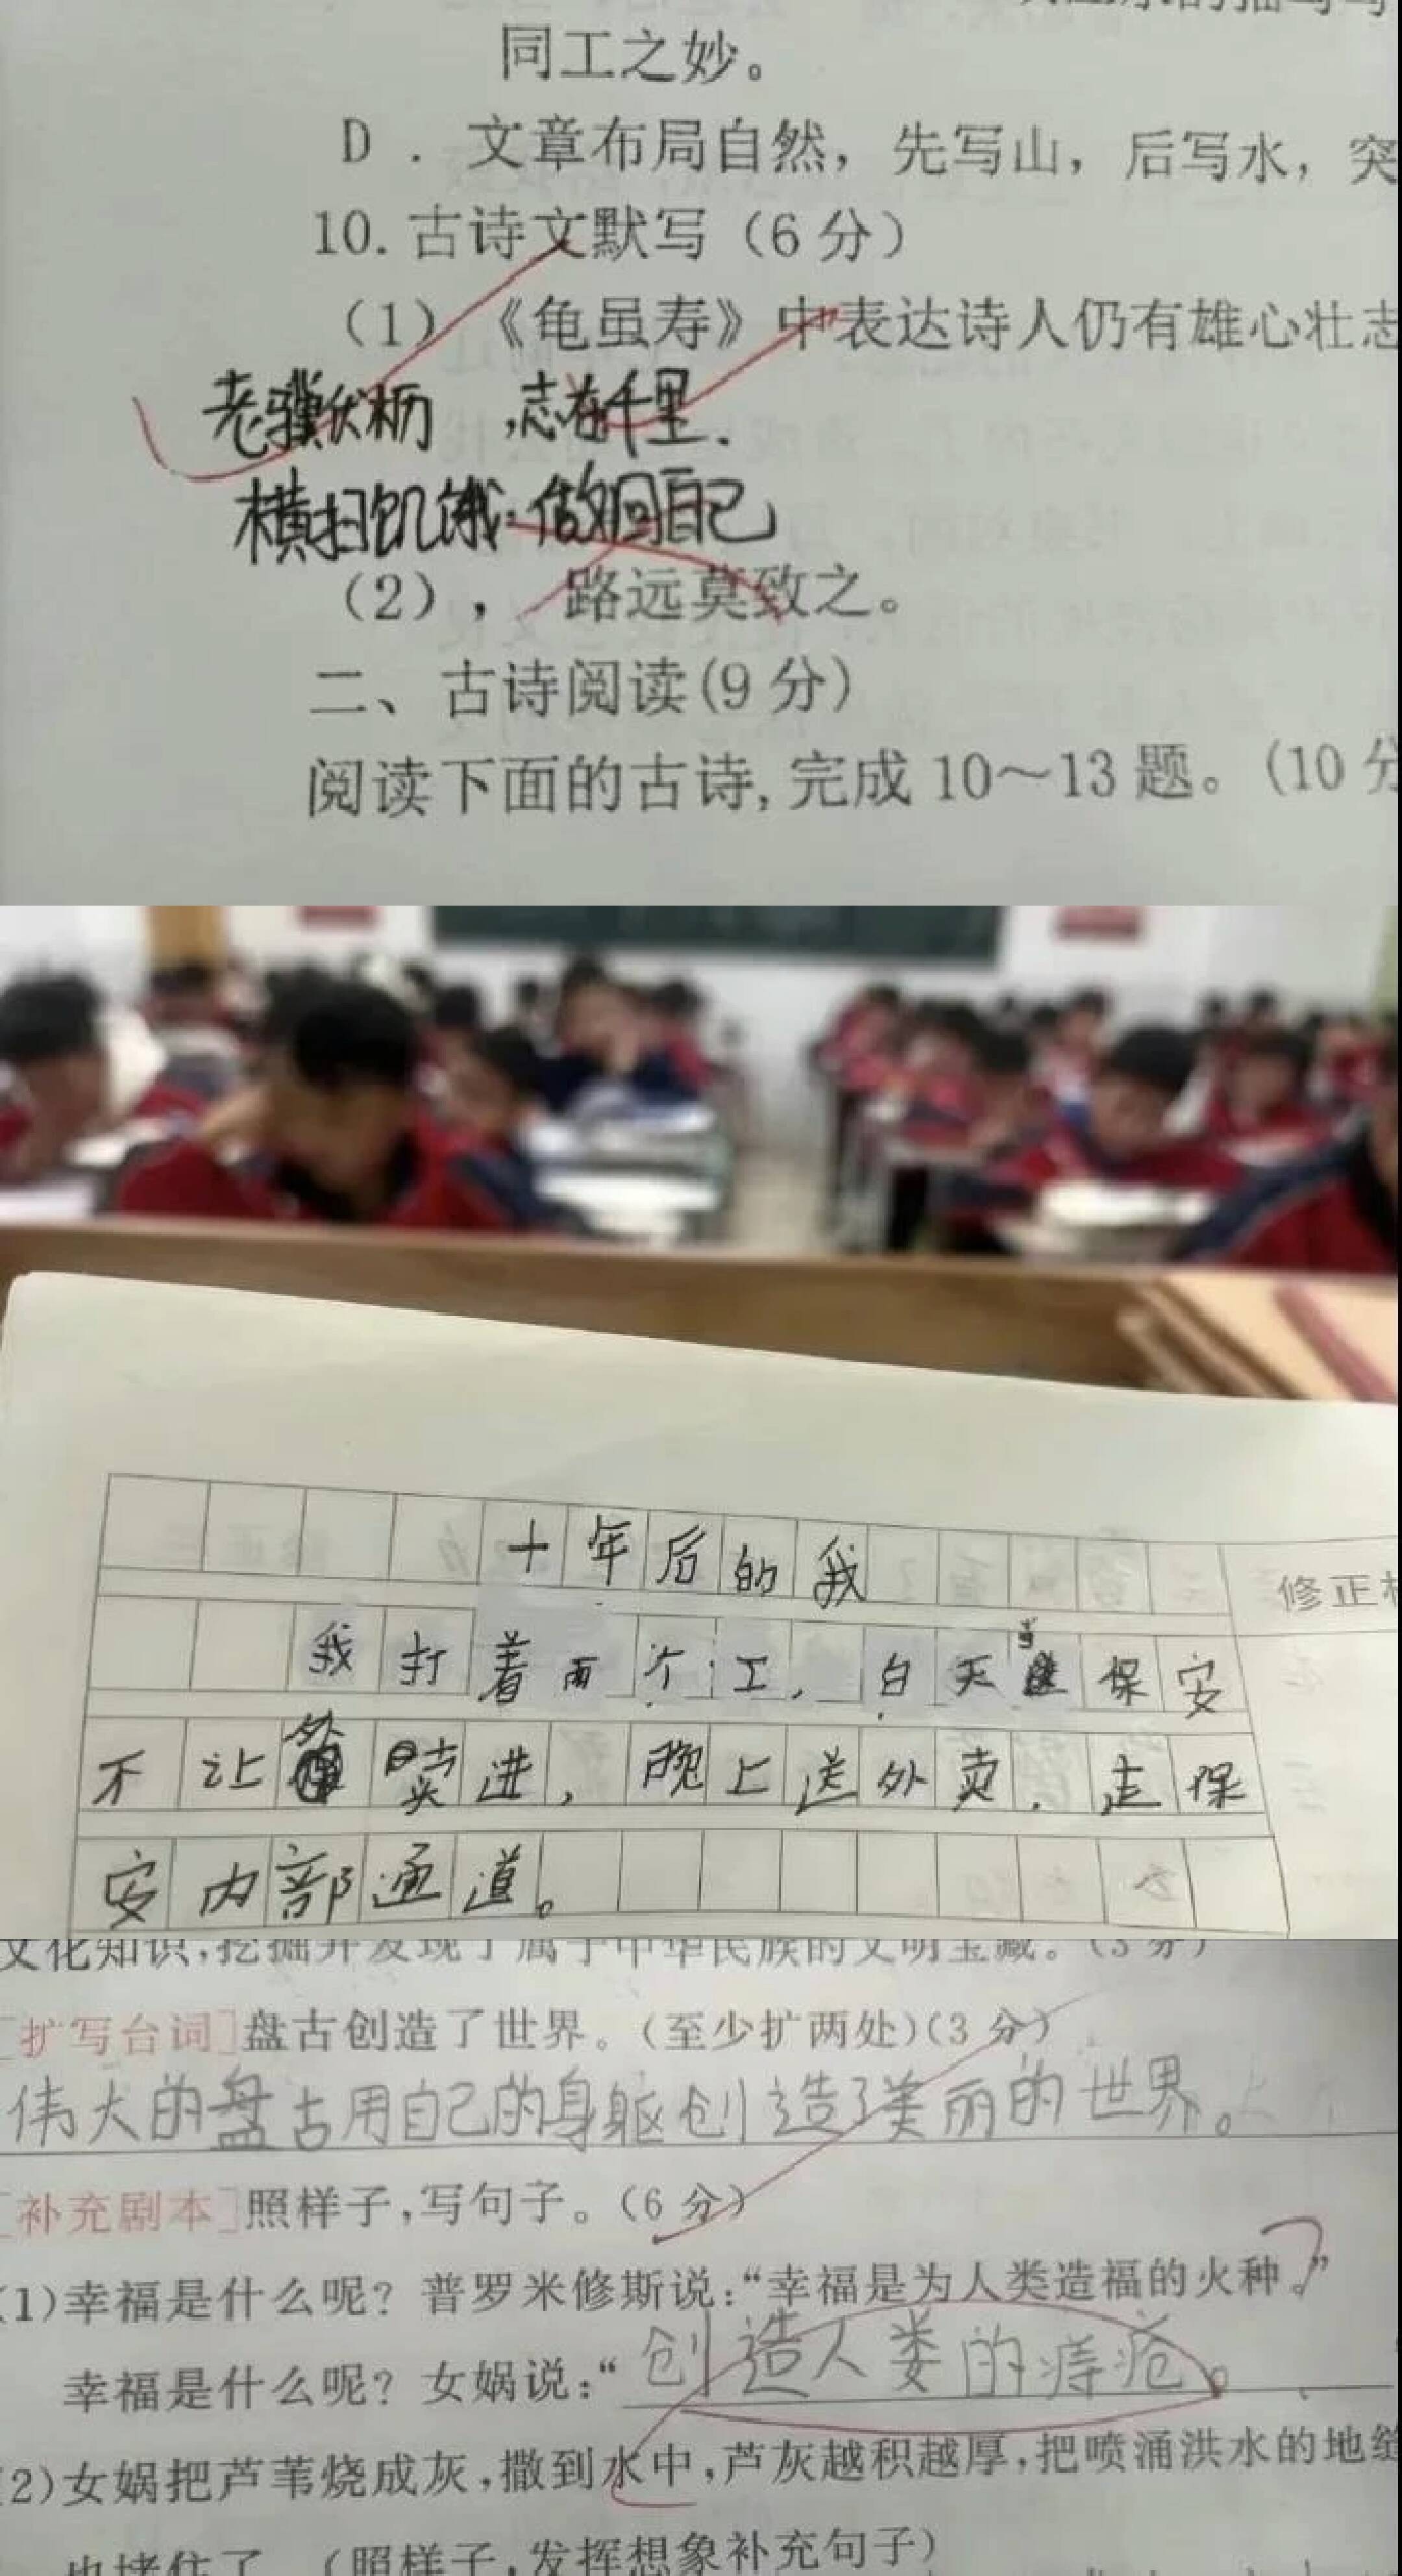 同工之妙。
D．文章布局自然，先写山，后写水，突
10.古诗文默写（6分）
（1）《龟虽寿》中表达诗人仍有雄心壮志
老骥伏枥，志在千里.
横扫饥饿.做回自己
（2），路远莫致之。
二、古诗阅读(9分)
阅读下面的古诗,完成10～13题。(10分
十年后的我
修正
我打着两个工，白天当保安
不让外卖进，晚上送外卖.走保
安内部通道。
文化知识,挖掘并发现了属于中华民族的文明宝藏。(3分)
[扩写台词]盘古创造了世界。(至少扩两处)(3分)
伟大的盘古用自己的身躯创造了美丽的世界。
[补充剧本]照样子,写句子。(6分)
(1)幸福是什么呢？普罗米修斯说:“幸福是为人类造福的火种。”
幸福是什么呢？女娲说:“创造人娄的痔疮。
(2)女娲把芦苇烧成灰,撒到水中,芦灰越积越厚,把喷涌洪水的地缝
也堵住了。(照样子,发挥想象补充句子)